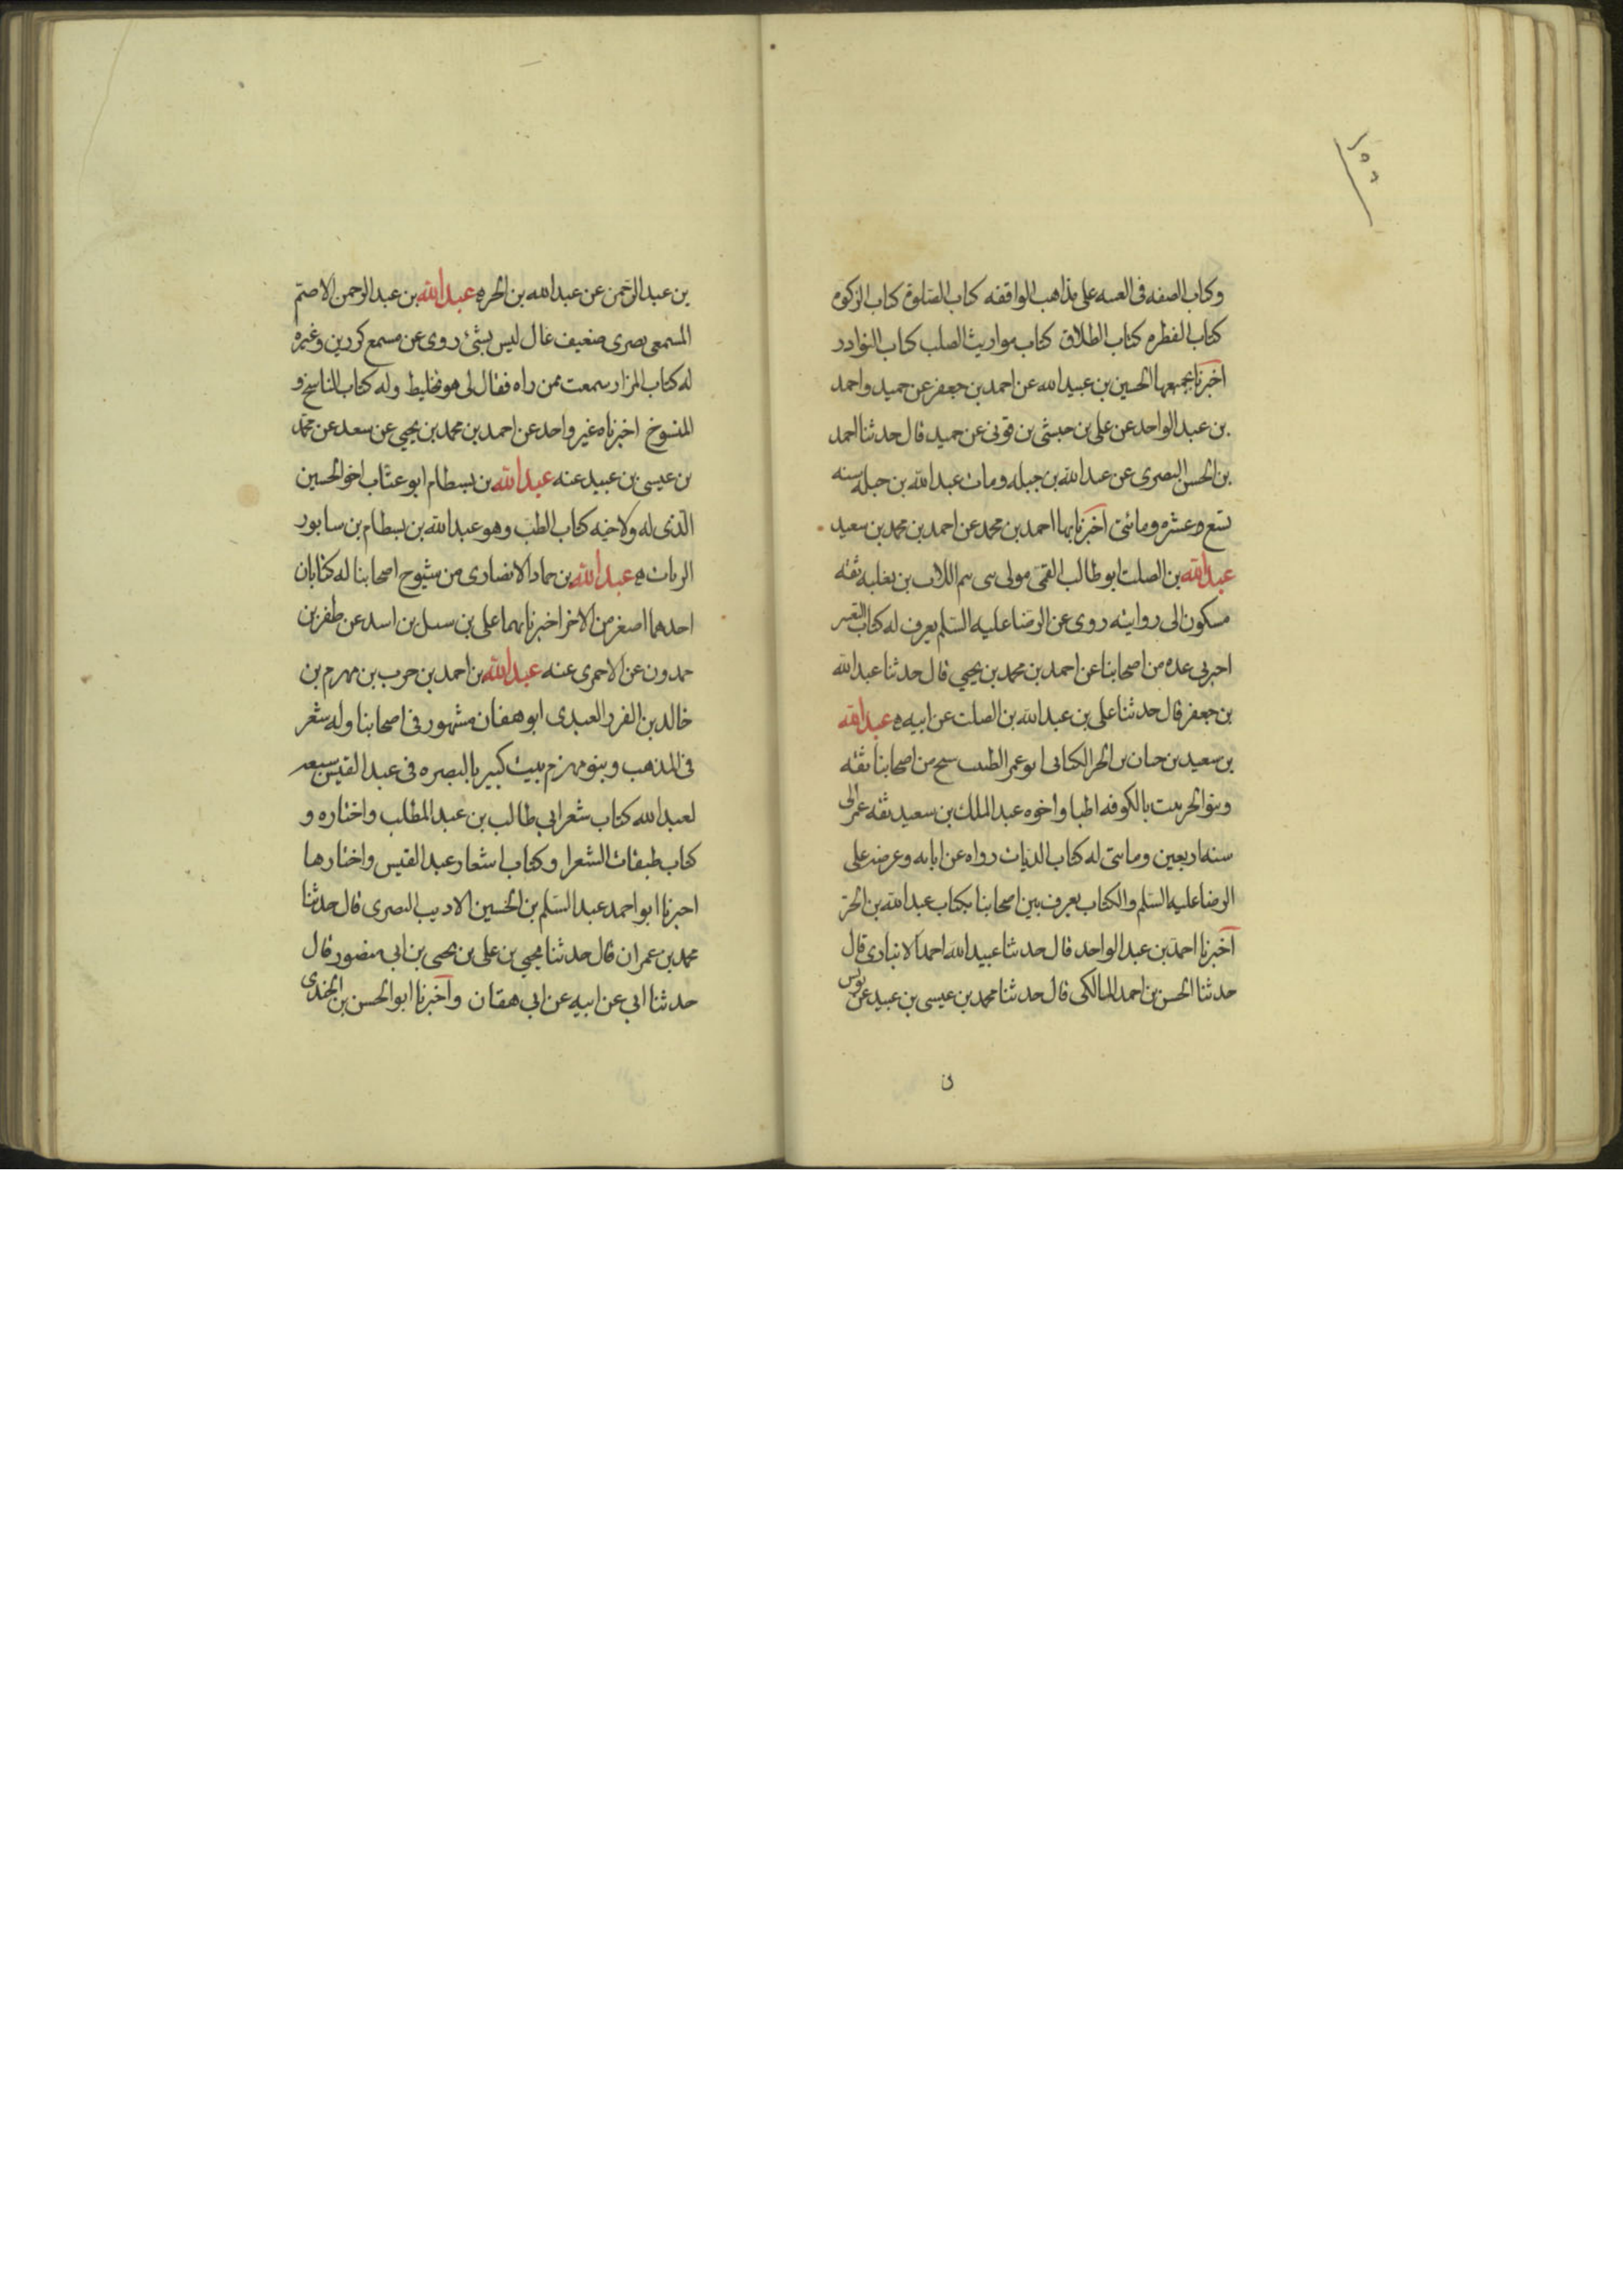 وكاب الصفه فى الغيبه على مذاهب الواقفه كاب الصلوة كاب الزكوه
كتاب الفطره كتاب الطلاق كتاب مواريث الصلب كاب النوادر
اخبرنا بجميعها الحسين بن عبيد الله عن احمد بن جعفر عن حميد واحمد
بن عبد الواحد عن على بن حبشى بن قونى عن حميد قال حدثنا احمد
بن الحسن البصرى عن عبد الله بن جبله ومات عبد الله بن جبله سنه
تسع وعشره ومائتى اخبرنا بها احمد بن محمد عن احمد بن محمد بن سعيد
عبد الله بن الصلت ابو طالب القمى مولى بنى تيم اللات بن ثعلبه ثقه
مسكون الى روايته روى عن الرضا عليه السلم يعرف له كتاب التفسير
اخبرنى عده من اصحابنا عن احمد بن محمد بن يحيى قال حدثنا عبد الله
بن جعفر قال حدثنا على بن عبد الله بن الصلت عن ابيه ه عبد الله
بن سعيد بن حيان بن الحر الكنانى ابو عمر الطبيب شيخ من اصحابنا ثقه
وبنو الحر بيت بالكوفه اطبا واخوه عبد الملك بن سعيد ثقه عمر الى
سنه اربعين ومايتى له كتاب الديات رواه عن ابايه وعرضه على
الرضا عليه السلم والكتاب يعرف بين اصحابنا بكتاب عبد الله بن الحر
اخبرنا احمد بن عبد الواحد قال حدثنا عبيد الله احمد الانبارى قال
حدثنا الحسن بن احمد المالكى قال حدثنا محمد بن عيسى بن عبيد عن يونس
بن عبد الرحمن عن عبد الله بن الحر ه عبد الله بن عبد الرحمن الاصم
المسمعى بصرى ضعيف غال ليس بشئ روى عن مسمع كردين وغيره
له كتاب المزار سمعت ممن راه فقال لى هو تخليط وله كتاب الناسخ و
المنسوخ اخبرناه غير واحد عن احمد بن محمد بن يحيى عن سعد عن محمد
بن عيسى بن عبيد عنه عبد الله بن بسطام ابو عتاب اخو الحسين
الذى له ولاخيه كتاب الطب وهو عبد الله بن بسطام بن سابور
الزيات ه عبد الله بن حماد الانصارى من شيوخ اصحابنا له كتابان
احدهما اصغر من الاخر اخبرنا بهما على بن شبل بن اسد عن ظفر بن
حمدون عن الاحمرى عنه عبد الله بن احمد بن حرب بن مهرم بن
خالد بن الفرر العبدى ابو هفان مشهور فى اصحابنا وله شعر
فى المذهب وبنو مهزم بيت كبير بالبصره فى عبد القيس شيعه
لعبد الله كتاب شعر ابى طالب بن عبد المطلب واخباره و
كتاب طبقات الشعرا وكتاب اشعار عبد القيس واخبارها
اخبرنا ابو احمد عبد السلم بن الحسين الاديب البصرى قال حدثنا
محمد بن عمران قال حدثنا يحيى بن على بن يحيى بن ابى منصور قال
حدثنا ابى عن ابيه عن ابى هفان واخبرنا ابو الحسن بن الجندى